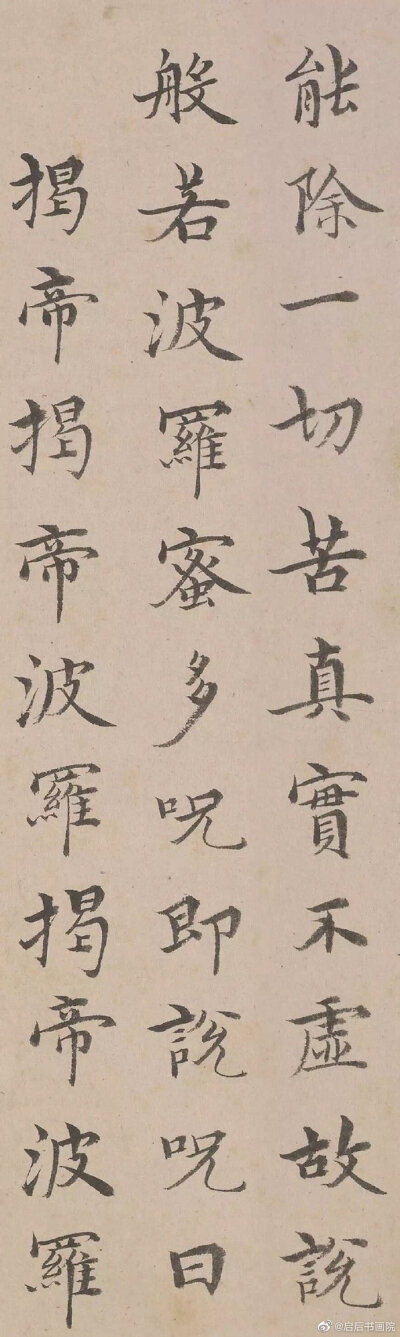 能除一切苦真實不虛故說
般若波羅蜜多呪即說呪曰
揭帝揭帝波羅揭帝波羅
@启后书画院